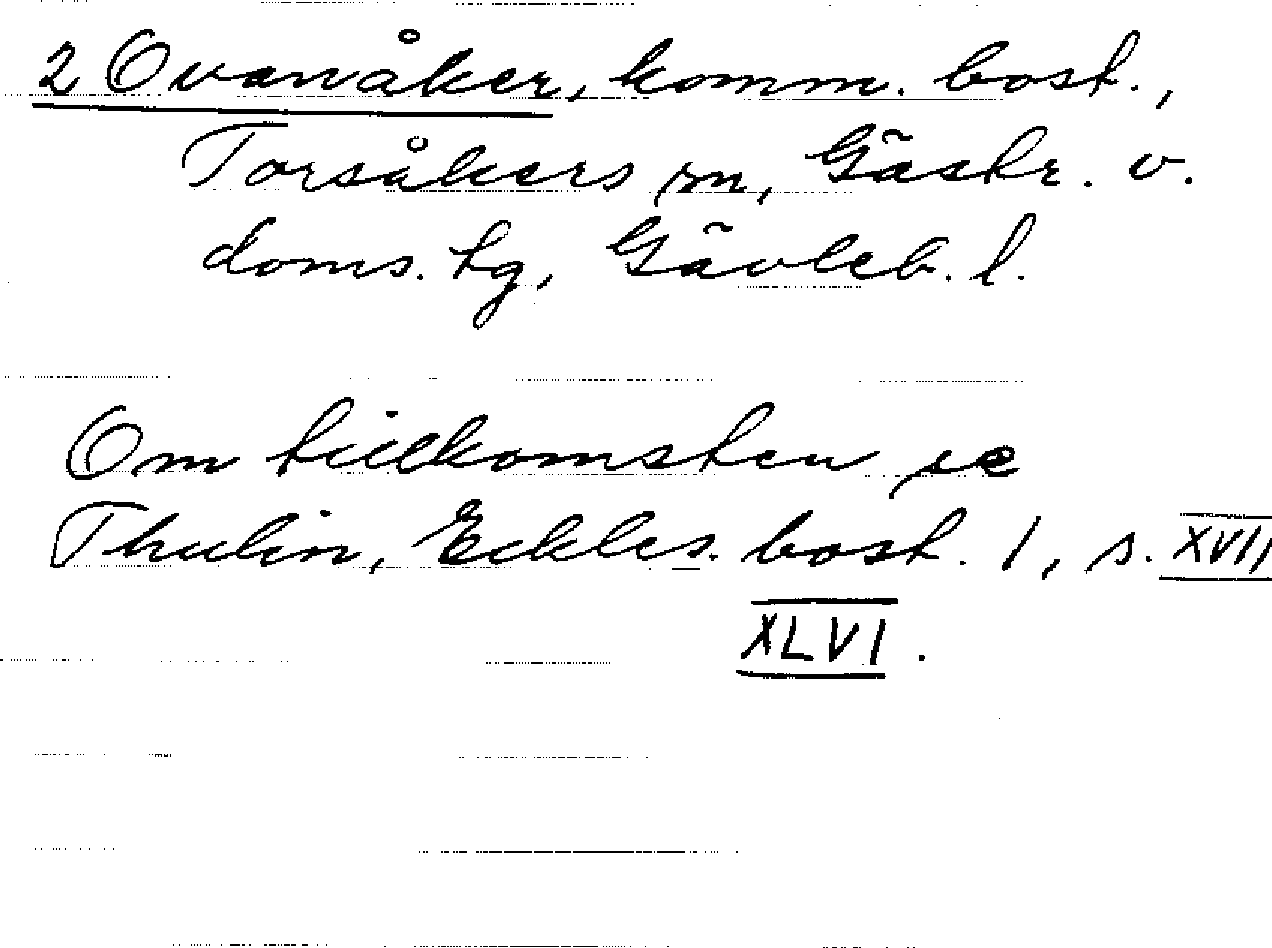 2 Ovanåker, komm. bost.,
Torsåkers sn, Gästr. v.
doms. tg, Gävleb. l.
Om tillkomsten se
Thulin, Eckles. bost. 1, s. XVII
XLVI.